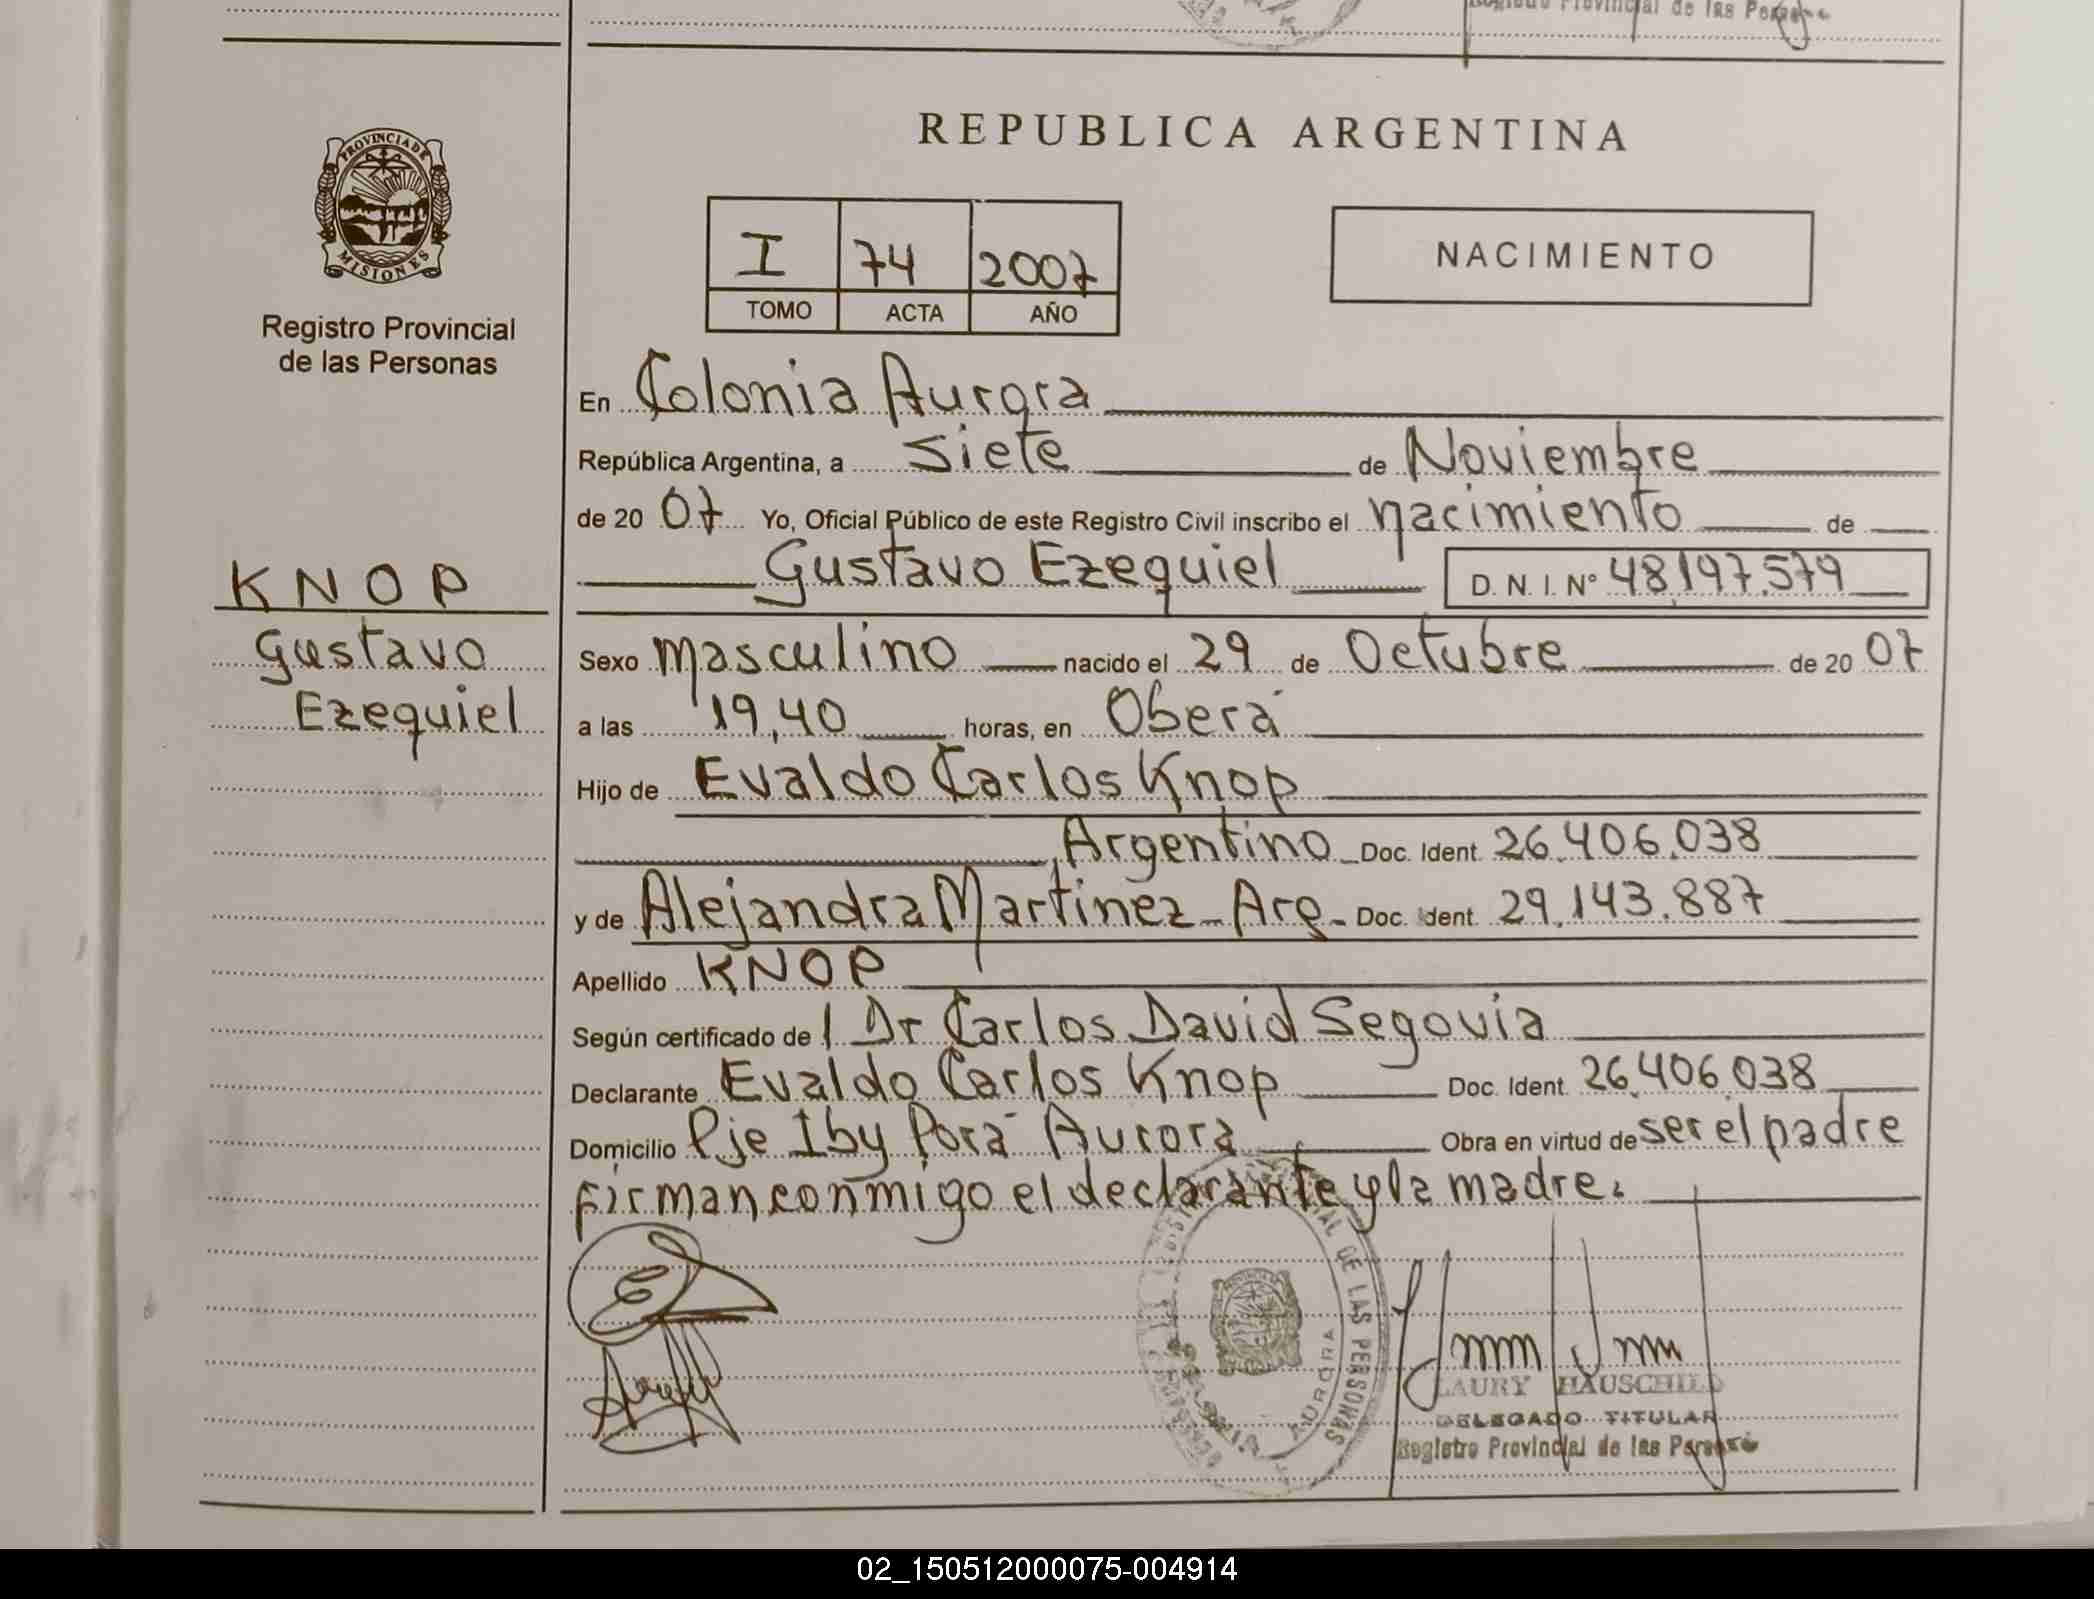 Registro Provincial de las Personas
PROVINCIA DE
MISIONES
Registro Provincial
de las Personas
KNOP
Gustavo
Ezequiel
REPUBLICA ARGENTINA
I 74 2007
TOMO ACTA AÑO
NACIMIENTO
En Colonia Aurora
República Argentina, a siete de Noviembre
de 20 07 Yo, Oficial Público de este Registro Civil inscribo el nacimiento de
Gustavo Ezequiel D. N. I. Nº 48.197.579
Sexo masculino nacido el 29 de Octubre de 20 07
a las 19,40 horas, en Oberá
Hijo de Evaldo Carlos Knop
, Argentino Doc. Ident. 26.406.038
y de Alejandra Martinez - Arg - Doc. Ident. 29.143.887
Apellido KNOP
Según certificado de l Dr Carlos David Segovia
Declarante Evaldo Carlos Knop Doc. Ident. 26.406.038
Domicilio Pje Iby Porá Aurora Obra en virtud de ser el padre
firman conmigo el declarante y la madre.
DE LAS PERSONAS
AURORA
LAURY HAUSCHILD
DELEGADO TITULAR
Registro Provincial de las Personas
02_150512000075-004914